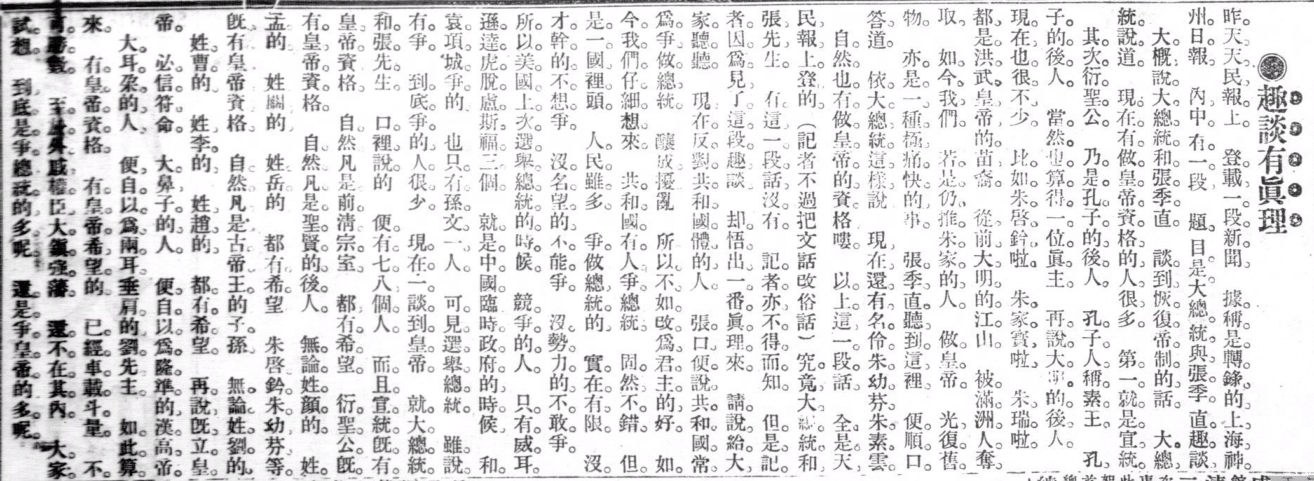 趣談有眞理
昨天天民報上、登載一段新聞、據稱是轉錄的上海神
州日報、內中有一段、題目是大總統與張季直趣談、
大概說大總統和張季直、談到恢復帝制的話、大總
統說道、現在有做皇帝資格的人很多、第一就是宣統、
其次衍聖公、乃是孔子的後人、孔子人稱素王、孔
子的後人、當然也算得一位眞主、再說大明的後人、
現在也很不少、比如朱啓鈐啦、朱家寶啦、朱瑞啦、
都是洪武皇帝的苗裔、從前大明的江山、被滿洲人奪
取、如今我們、若是仍推朱家的人、做皇帝、光復舊
物、亦是一種極痛快的事、張季直聽到這裡、便順口
答道、依大總統這樣說、現在還有名伶朱幼芬朱素雲、
自然也有做皇帝的資格嘍、以上這一段話、全是天
民報上登的、（記者不過把文話改俗話）究竟大總統和
張先生、有這一段話沒有、記者亦不得而知、但是記
者因爲見了這段趣談、却悟出一番眞理來、請說給大
家聽聽、現在反對共和國體的人、張口便說共和國常
爲爭做總統、釀成擾亂、所以不如改爲君主的好、如
今我們仔細想來、共和國有人爭總統、固然不錯、但
是一國裡頭、人民雖多、爭做總統的、實在有限、沒
才幹的不想爭、沒名望的不能爭、沒勢力的不敢爭、
所以美國上次選舉總統的時候、競爭的人、只有威耳
遜達虎脫盧斯福三個、就是中國臨時政府的時候、和
袁項城爭的、也只有孫文一人、可見選舉總統、雖說
有爭、到底爭的人很少、現在一談到皇帝、就大總統
和張先生、口裡說的、便有七八個人、而且宣統旣有
皇帝資格、自然凡是前淸宗室、都有希望、衍聖公旣
有皇帝資格、自然凡是聖賢的後人、無論姓顏的、姓
孟的、姓關的、姓岳的、都有希望、朱啓鈐朱幼芬等、
旣有皇帝資格、自然凡是古帝王的子孫、無論姓劉的、
姓曹的、姓李的、姓趙的、都有希望、再說旣立皇
帝、必信符命、大鼻子的人、便自以爲隆準的漢高帝、
大耳朶的人、便自以爲兩耳垂肩的劉先主、如此算
來、有皇帝資格、有皇帝希望的、已經車載斗量、不
可勝數、至於外戚權臣大鎭强藩、還不在其內、大家
試想、到底是爭總統的多呢、還是爭皇帝的多呢、